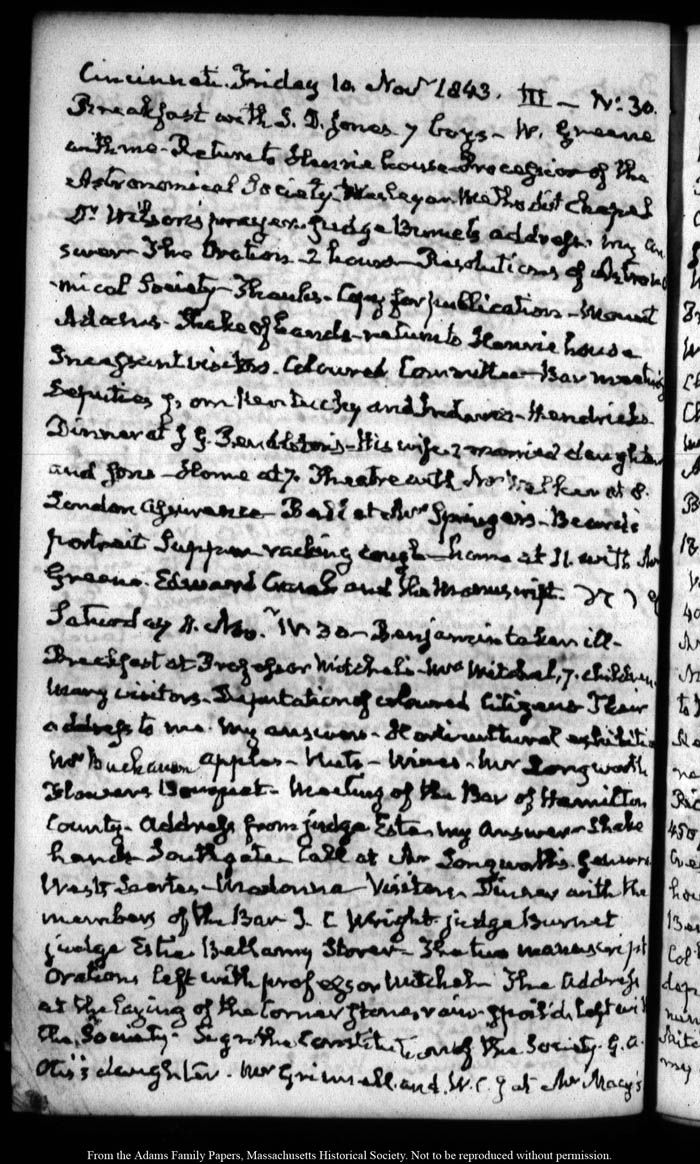 Cincinnati. Friday 10. Novr 1843. III — No. 30.
Breakfast with S. D. Jones 7 boys - W. Greene
with me - Return to Henrie house - Procession of the
Astronomical Society - Wesleyan Methodist Chapel
Dr Wilson's prayer. Judge Burnet's address. my an
swer - The Oration - 2 hours - Resolutions of Astrono
mical Society - Thanks - Copy for publication - Mount
Adams - Shake of hands - return to Henrie house
visitors. Coloured Committee - Bar meeting
Deputies from Kentucky and Indiana - Hendricks
Dinner at J G. - His wife, 2 married daughters
and Sons - Home at 7. Theatre with Mr Walker at 8.
London Assurance - Ball at Mr Springer's -
portrait Supper - racking cough - home at 11. with Mr
Greene. Edward and the Manuscript.
Saturday 11. Nov. IV 30 - Benjamin taken ill -
Breakfast at Professor Mitchel's - Mrs Mitchel, 7. children.
Many visitors - Deputation of coloured Citizens Their
address to me. My answer - Horticultural exhibition
Mr Buchanan apples - Nuts - Wines - Mr Longworth
Flowers Bouquet - Meeting of the Bar of Hamilton
County. Address from judge Este, my Answer - Shake
hands Southgate Call at Mr Longworth's.
West's - Madonna - Visitors Dinner with the
members of the Bar J. C Wright judge Burnet
judge Este Bellamy Storer - The two manuscript
Orations left with professor Mitchel - The Address
at the laying of the Corner Stone, rain-spoil'd, left with
the Society - Sign the Constitution of the Society. G. A.
Otis's daughter - Mr Grinnell and W. C. G at Mr Macy's
From the Adams Family Papers, Massachusetts Historical Society. Not to be reproduced without permission.